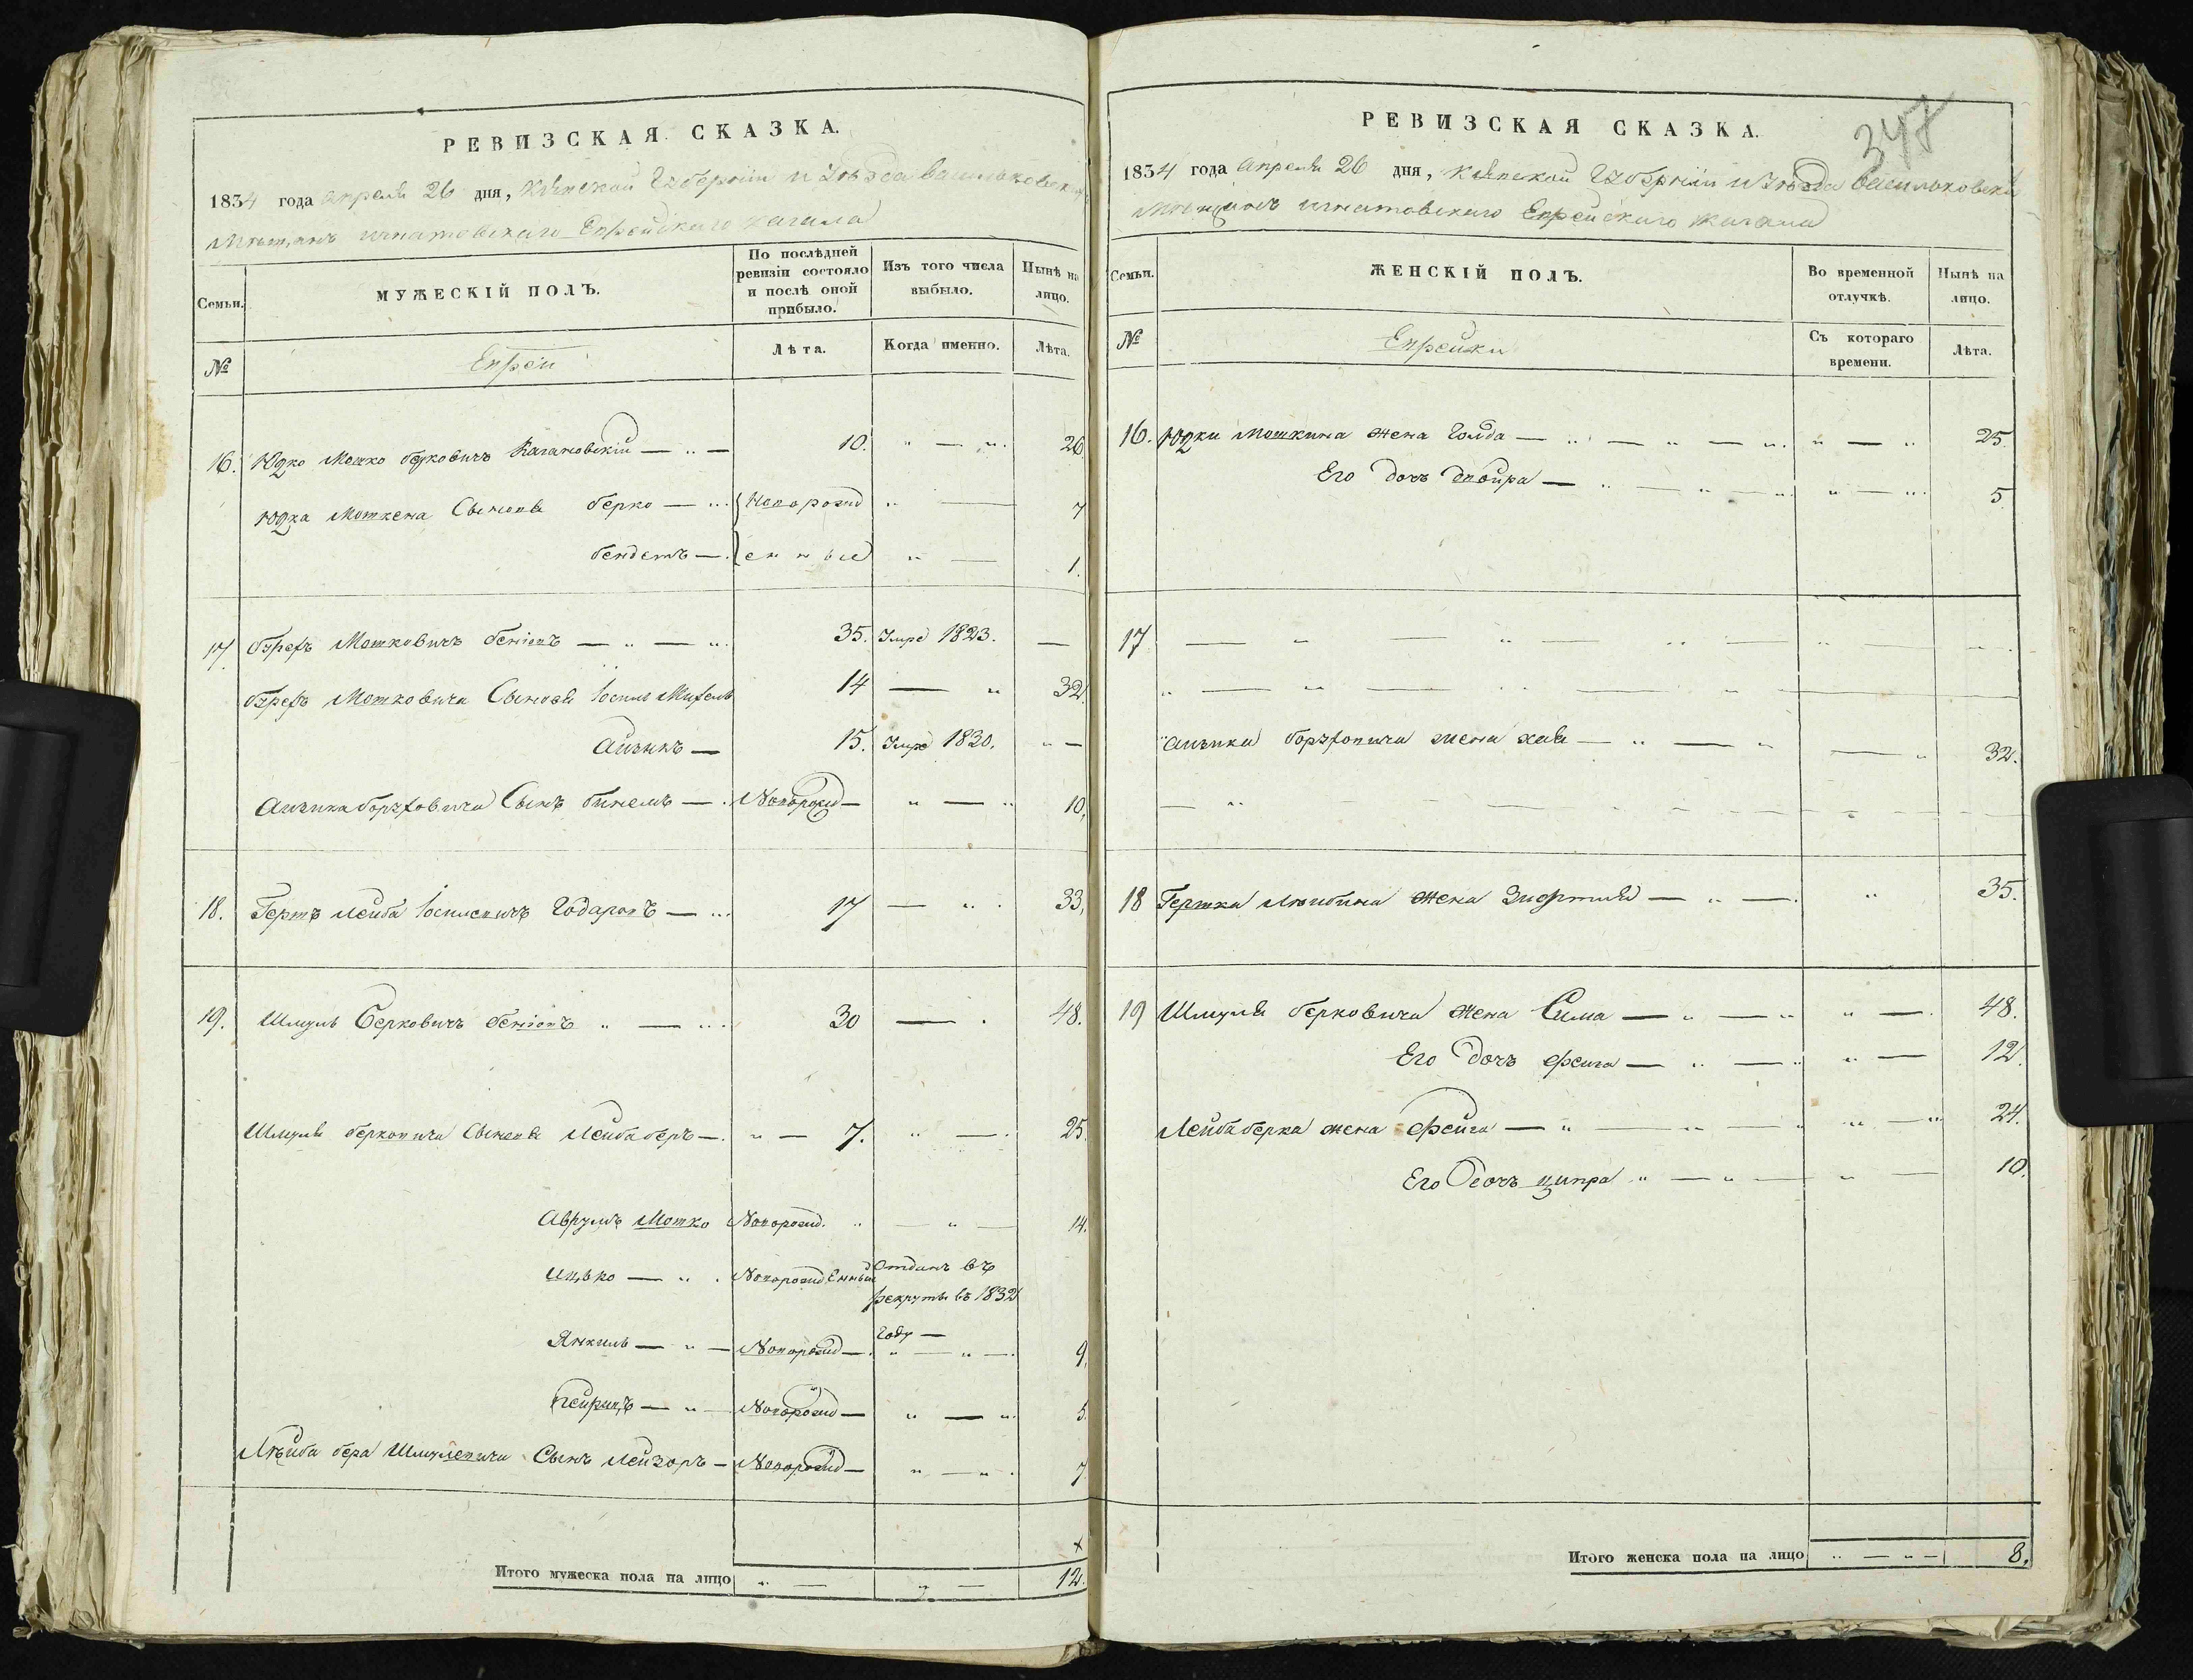 РЕВИЗСКАЯ СКАЗКА.
1834 года апреля 26 дня, Кіевской Губерніи и Уѣзда Васильковск
Мѣщанъ Игнатовскаго Еврейскаго Кагала
Семьи.
МУЖЕСКІЙ ПОЛЪ.
По послѣдней ревизіи состояло и послѣ оной прибыло.
Изъ того числа выбыло.
Нынѣ на лицо.
№
Евреи
Лѣта.
Когда именно.
Лѣта.
16. Юдко Мошко берковичъ Кагановскій — „ — 10. „ — „ 26.
Юдка Мошкена Сынова берко — „ Новорожд „ — 7
бендетъ — енныя „ — 1.
17 Мошковичъ — „ — „ 35. Умре 1823. —
Мошковича Сыновя Іосиль 14 — „ 32.
Айзикъ — 15. Умре 1830. „ —
Айзика Сынъ — Новорожд — „ — „ 10,
18. Гершъ лейба Іосилевичъ — „ 17 — „ . 33,
19. Шмуль Берковичъ „ — „ 30 — . 48.
Шмуля берковича Сыновя Лейба беръ — . „ — 7. „ — . 25.
Аврумъ Мошко Новорожд. „ — „ — 14.
Ицько — „ . Новорожденный Отданъ въ
рекруты въ 1832
Году —
Янкиль — „ — Новорожд — . „ — „ — . 9.
— „ — Новорожд — „ — „ 5.
Лѣйба бера Шмулевича Сынъ Лейзоръ — Новорожд — „ — „ . 7
х
Итого мужеска пола на лицо „ — „ — 12.
347
РЕВИЗСКАЯ СКАЗКА.
1834 года апреля 26 дня, Кіевской Губерніи и Уѣзда Васильковска
Мѣщанъ Игнатовскаго Еврейскаго Кагала
Семьи.
ЖЕНСКІЙ ПОЛЪ.
Во временной отлучкѣ.
Нынѣ на лицо.
№
Еврейки
Съ котораго времени.
Лѣта.
16. Юдки Мошкина жена Голда — „ — „ — „ „ — „ 25.
Его дочъ двойра — „ — „ — „ „ — „ 5.
17
Айзика жена хая — „ — „ — „ 32.
18 Гершка Лейбина жена — „ — . „ 35.
19 Шмуля берковича жена Сима — „ — „ „ — . 48.
Его дочъ фейга — „ — „ „ — 12.
Лейба берка жена фейга — „ — „ — „ „ — „ 24.
Его дочъ ципра „ — „ — „ — 10.
Итого женска пола на лицо „ — „ — 8.